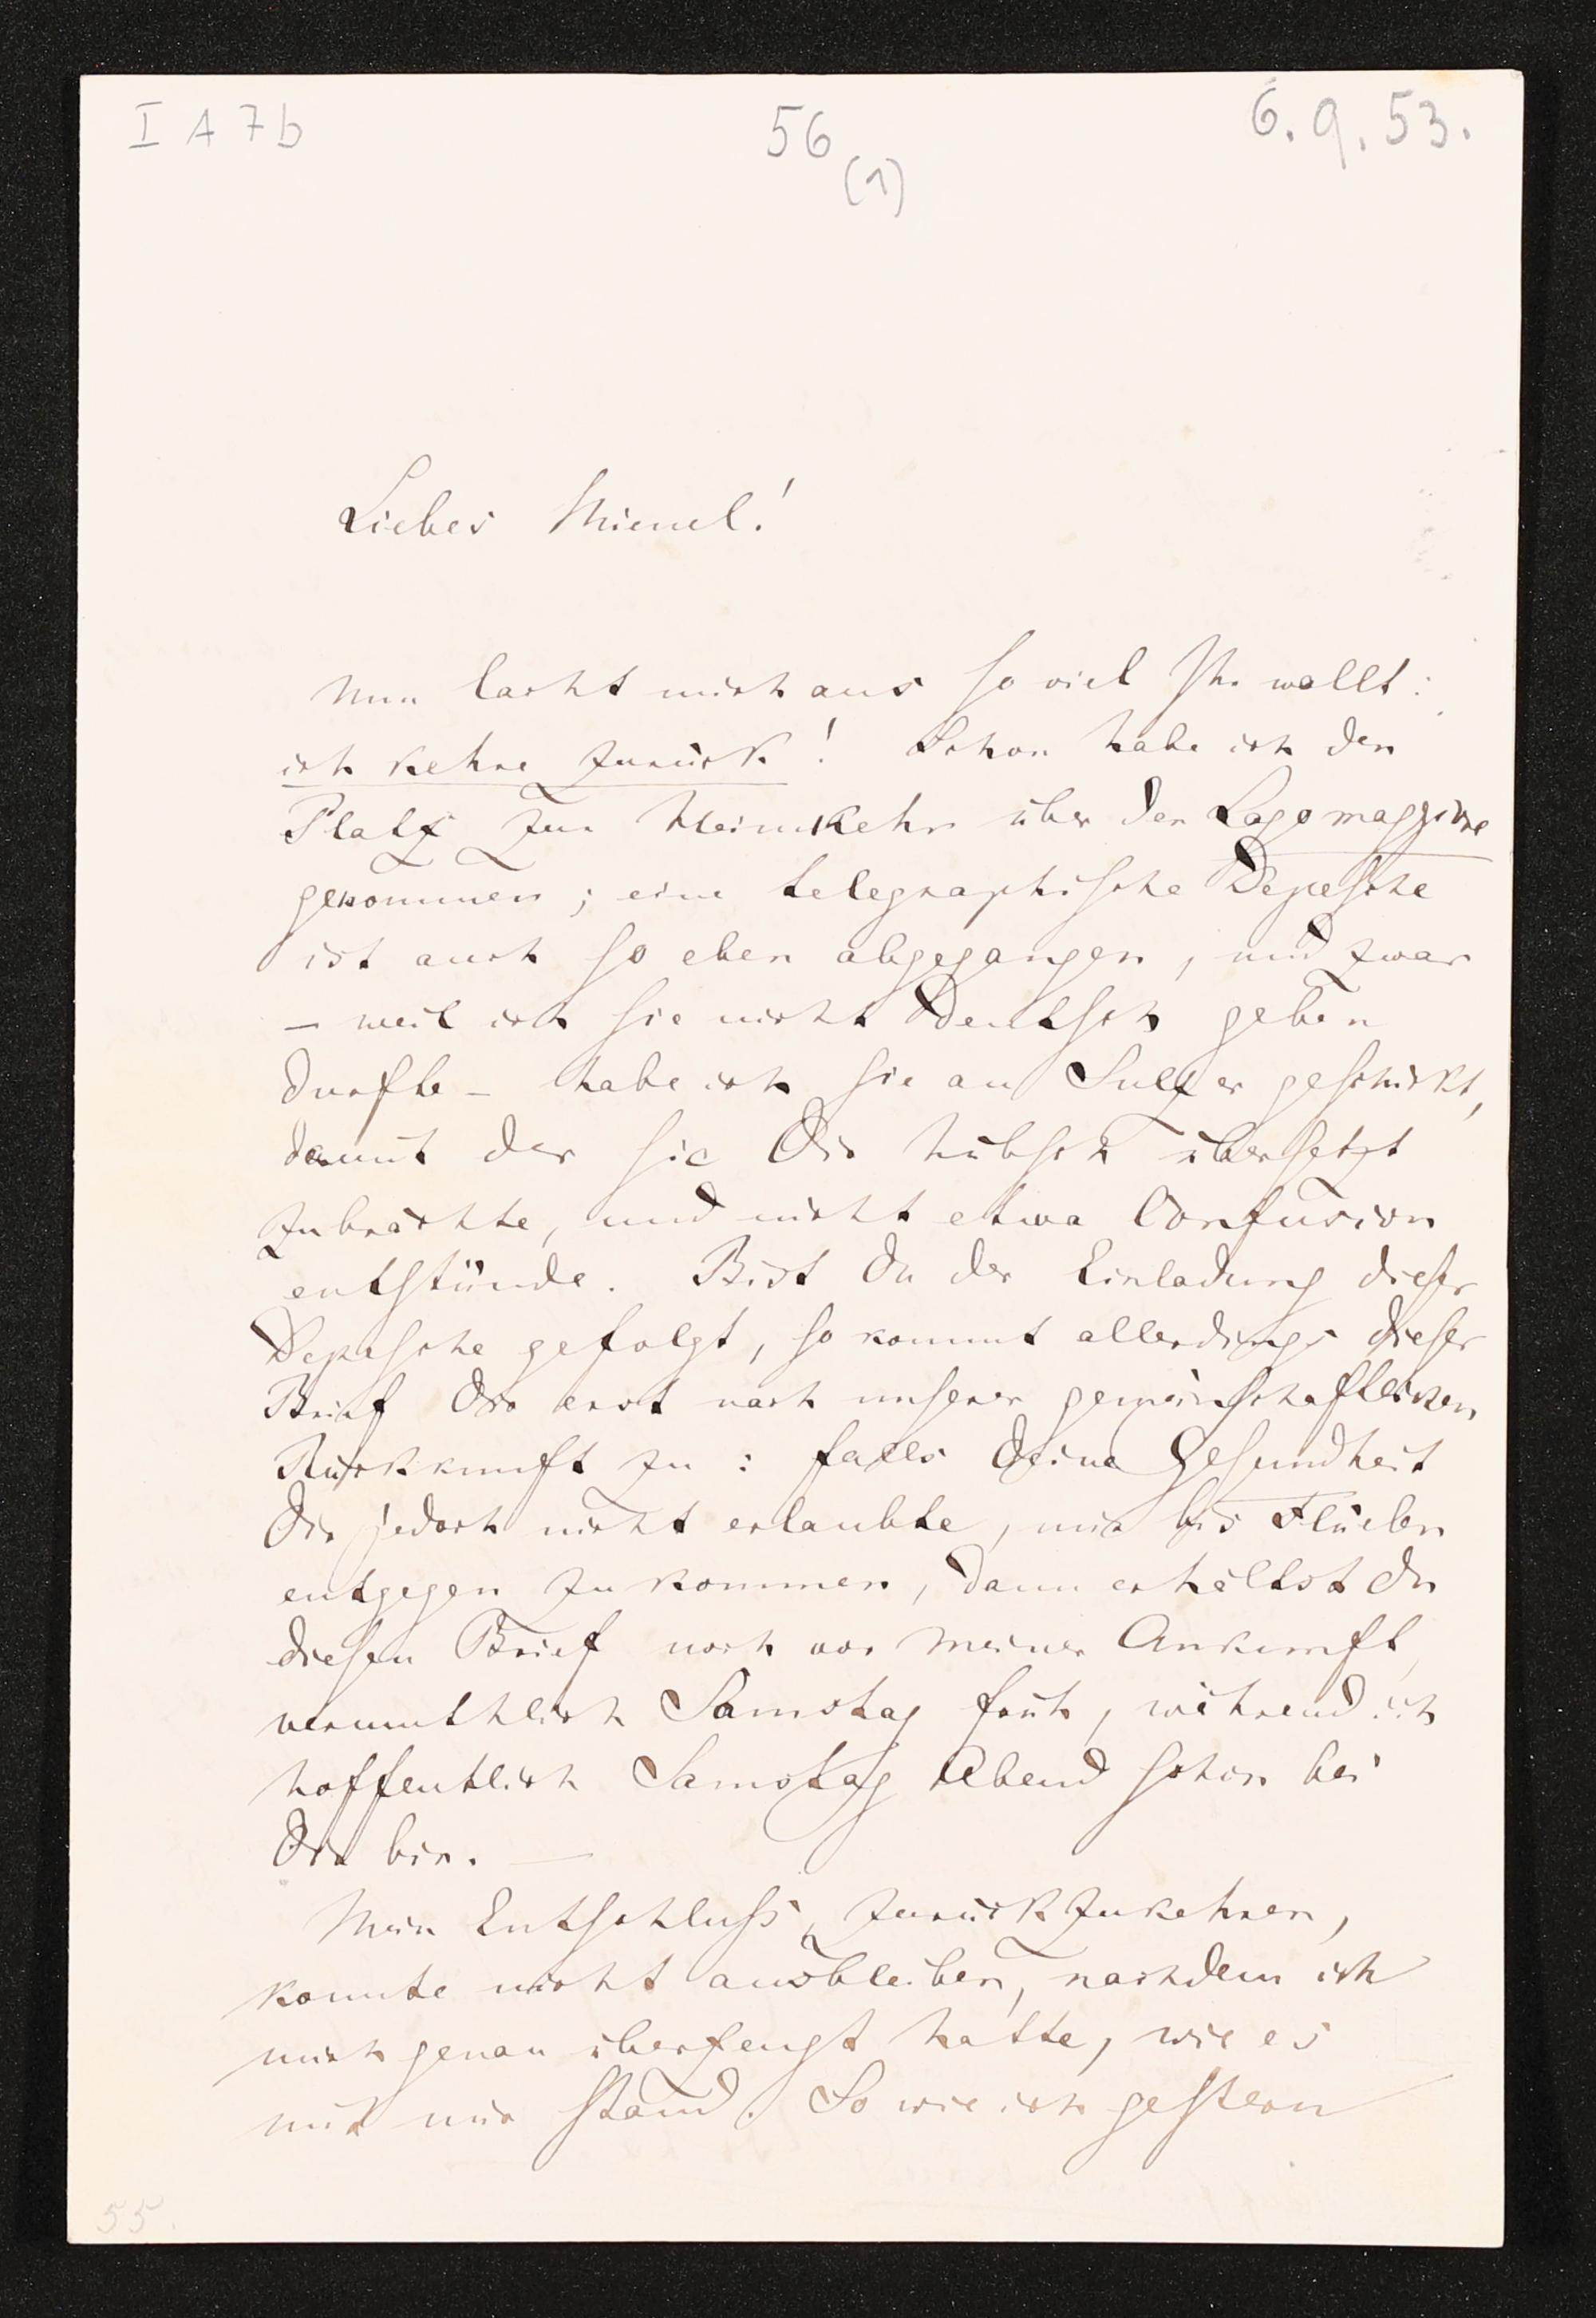 I A 7b
56
(1)
6. 9. 53.
Liebes Mienel!
Nun lacht mich aus so viel Ihr wollt:
ich kehre zurück! Schon habe ich den
Platz zur Heimkehr über den Lago maggiore
genommen; eine telegraphische Depesche
ist auch so eben abgegangen, und zwar
– weil ich sie nicht deutsch geben
durfte – habe ich sie an Sulzer geschickt,
damit der sie Dir hübsch übersetzt
zubrächte, und nicht etwa Confusion
entstünde. Bist Du der Einladung dieser
Depesche gefolgt, so kommt allerdings dieser
Brief Dir erst nach unserer gemeinschaftlichen
Rückkunft zu: falls Deine Gesundheit
Dir jedoch nicht erlaubte, mir bis Flüelen
entgegen zu kommen, dann erhältst Du
diesen Brief noch vor meiner Ankunft,
vermuthlich Samstag früh, während ich
hoffentlich Samstag Abend schon bei
Dir bin. —
Mein Entschluss, zurückzukehren,
konnte nicht ausbleiben, nachdem ich
mich genau überzeugt hatte, wie es
mit mir stand. So wie ich gestern
55.